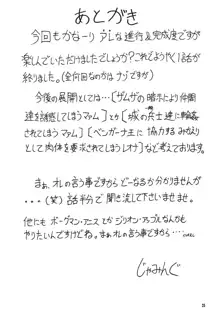 あとがき
今回もかなーり アレな進行＆完成度ですが
楽しんでいただけましたでしょうか？これでようやく1話が
終りました。(全何回なのかはナゾですが)
今後の展開としては…［ザムザの暗示により仲間
達を誘惑してしまうマァム］とか［城の兵士達に輪姦
されてしまうマァム］［ベンガーナ王に協力するみかえり
として肉体を要求されてしまうレオナ］など考えております。
まぁ、オレの言う事ですから どーなるか分かりませんが
…(笑) 話半分で聞き流して下さいませませ。
他にもボーグマン・アニスとかジリオン・アップルなんかも
やりたいんですけどね。まぁオレの言う事ですから……
じゃみんぐ